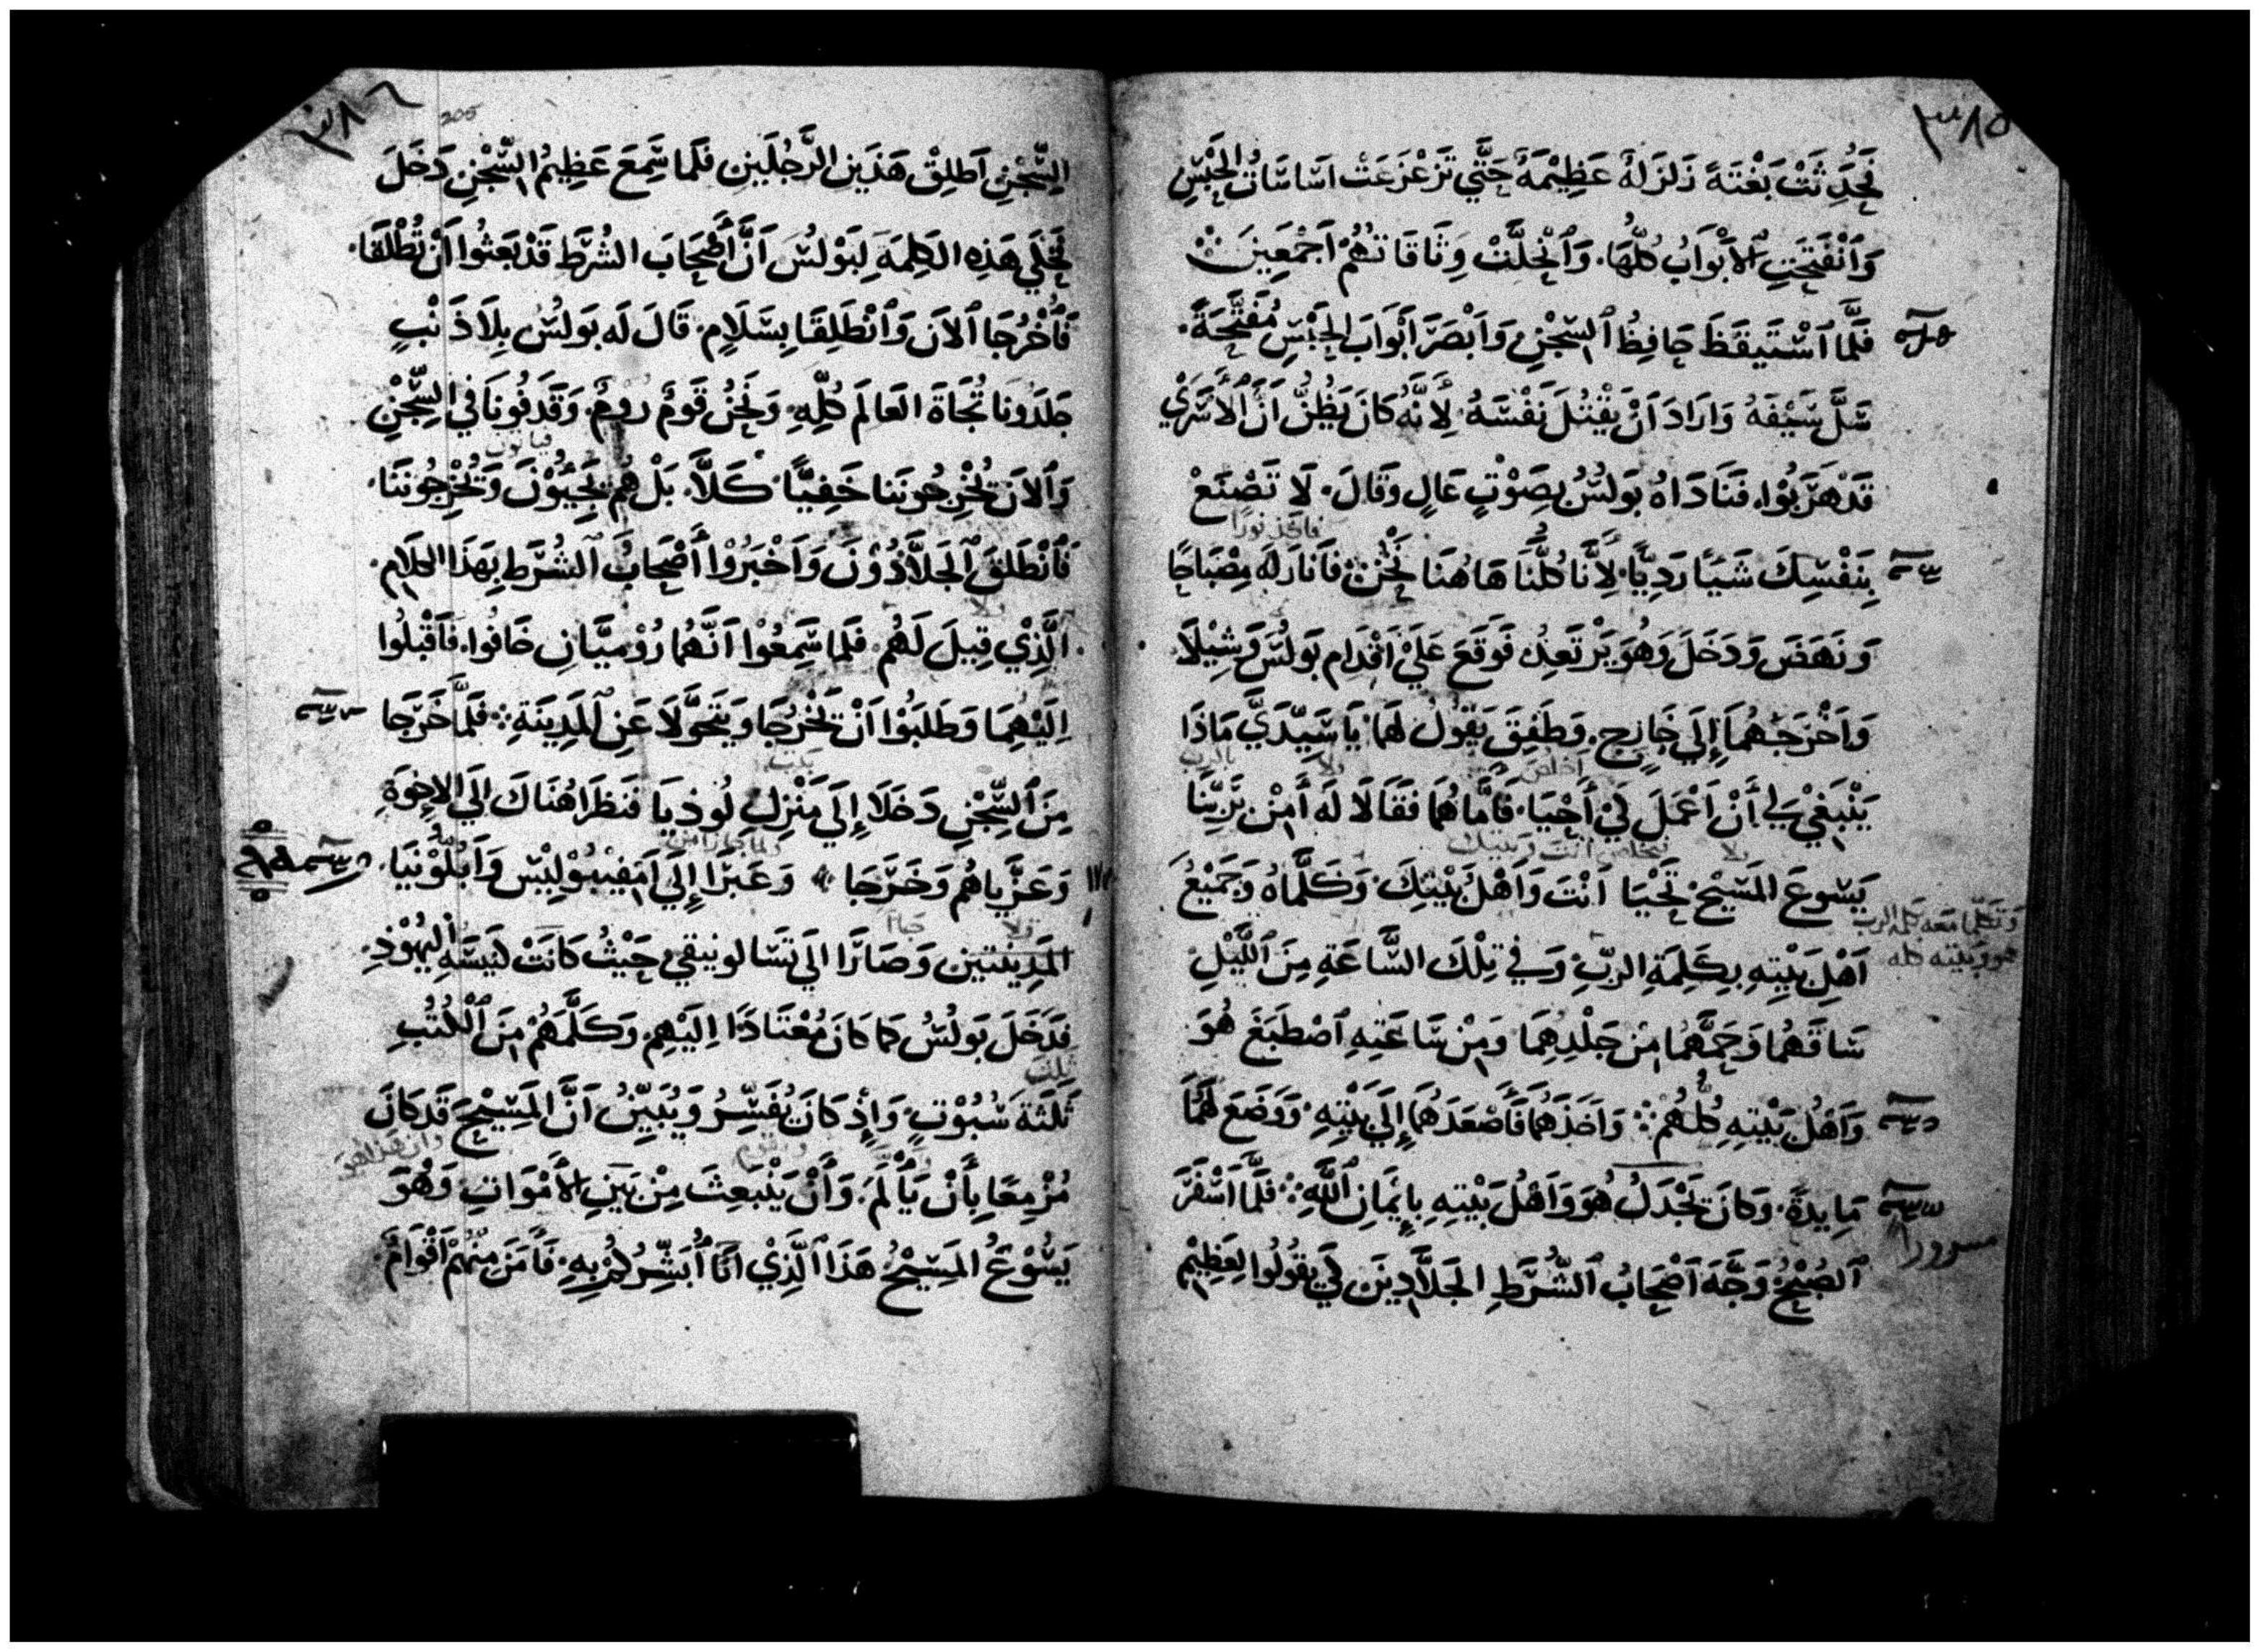 ٣٨٥
فَحَدَثَتْ بَغْتَةً زَلزَلةٌ عَظِيْمَةٌ حَتَّي تَزَعْزَعَتْ اسَاسَاتُ الحَبْسِ
وَانْفَتَحَتِ الاَبْوَابُ كُلُّهَا. وَانْحَلَّتْ وِثَاقَاتهُمْ اَجْمَعِينَ
فَلَمَّا اسْتَيقَظَ حَافِظُ السِّجْنِ وَابْصَرَ اَبْوَابَ الحَبْسِ مُفَتَّحَةً.
سَلَّ سَيْفَهُ وَارَادَ اَنْ يَقْتُلَ نَفْسَهُ لِأَنَّهُ كَانَ يَظُنُّ اَنَّ الأَسْرَيْ
قَدْ هَرَبُوْا. فَنَادَاهُ بَولُسُ بِصَوْتٍ عَالٍ وَقَالَ. لَا تَصْنَعْ
فاخذ نورا
بِنَفْسِكَ شَيًا رَدِيًّا. لِاَنَّا كُلُّنَا هَاهُنَا نَحْنُ فَاَنَارَ لَه مِصْبَاحًا
وَنَهَضَ وَدَخَلَ وَهُوَ يَرْتَعِدُ فَوَقَعَ عَلَيْ اَقْدَامِ بَولُسَ وَشِيْلَا
وَاَخْرَجَهُمَا إِلَي خَارِجٍ. وَطَفِقَ يَقْوُلُ لَهمَا يَا سَيِّدَيَّ مَاذَا
اخلص بالرب
يَنْبَغِيْ لِي أَنْ اَعْمَلَ لَكَيْ أَحْيَا. فَاَمَّا هُمَا فَقَالَا لَه أَمِنْ بَرَبِّنَا
تخلص انت وبيتك
يَسَوعَ المَسِيْحِ تَحْيَا اَنْتَ وَاَهْلُ بَيْتِكَ. وَكَلَّمَاهُ وَجَمِيْعُ
وتكلما معه كلمة الرب
اَهْلِ بَيْتِهِ بِكَلِمَةِ الرَبِّ وَفِي تِلْكَ السَّاعَةِ مِنَ اللَّيْلِ
هو وبيته كله
سَاقَهُمَا وَحَمَّهُمَا مِنْ جَلْدِهِمَا وَمِنْ سَّاعَتِهِ اصْطَبَغَ هُوَ
وَاَهْلُ بَيْتِهِ كُلُّهُمْ وَاَخَذَهُمَا فَأَصْعَدَهُمَا إِلَي بَيْتِهِ. وَوَضَعَ لَهُمَا
مَايِدَةً. وَكَانَ يَجْدَلُ هُوَ وَاَهْلُ بَيْتِهِ بِإِيْمَانِ اللَّهِ فَلَمَّا اَسْفَرَ
سرورا
الصُبْحُ وَجَّهَ اَصْحَابُ الشُّرَطِ الجَلَّادِينَ لَكَي يَقُولُوا لِعَظِيْمِ
٣٨٦
205
السِّجْنِ اَطلِقْ هَذَينِ الرَّجُلَينِ فَلَما سَمِعَ عَظِيمُ السِّجْنِ دَخَلَ
فَحَكَي هَذِهِ الكَلِمَةَ لِبَوْلُسَ اَنَّ أَصْحَابَ الشُرَطِ قَدْ بَعَثُوا اَنْ تُطْلَقَا.
فَأُخْرُجَا الآنَ وَانْطَلِقَا بِسَلَامٍ. قَالَ لَه بَولُسُ بِلَا ذَنْبٍ
جَلَدُونَا تُجَاهَ العَالَمِ كُلِّهِ. وَنَحْنُ قَومٌ رُومٌ. وَقَدَفُونَا فِي السِّجْنِ
فياتون
وَالانَ تُخْرِجُونَنا خَفِيًّا. كَلَّا. بَلْ هُم يَجِيُوْنَ وَتُخْرِجُونَنَا.
فَانْطَلَقَ الجَلَّادُوْنَ وَاَخْبَرُوْا أَصْحَابَ الشُرَطِ بِهَذَا الكَلَامِ.
الَّذِيْ قِيلَ لَهُم. فَلَما سَمِعُوْا اَنَّهُمَا رُوْمِيَّانِ خَافُوا. فَاَقْبَلُوا
اِلَيْهِمَا وَطَلَبَوْا اَنْ يَخْرُجَا وَيَتَحَوَّلَا عَنِ المَدِينَةِ فَلَمَّا خَرَجَا
مِنَ السِّجْنِ دَخَلَا إِلَي مَنْزِلِ لُوذِيَا فَنَظَرَا هُنَاكَ إِلَي الاِخوَةِ
وَعَزَّياهُم وَخَرَجَا وَعَبَرَا إِلَي اَمْفِيبُوْلِيْسَ وَاَبُلُوْنيَا.
المَدِينَتَين وَصَارَا اِلَي تَسَالونِيقِي حَيْثُ كَانَتْ كَنِيسَةُ اليَهُوْدِ.
فَدَخَلَ بَولُسُ كمَا كَانَ مُعْتَادًا اِلَيْهِمِ وَكَلَّمَهُمْ مِنَ الْكُتُبِ
ثَلثَةَ سُبُوْتٍ وَإِذ كَانَ يُفَسِّرُ وَيُبَيِّنُ اَنَّ المَسِيْحَ قَد كَانَ
وان هذا هو
مُزْمِعًا بِأَنْ يَأْلَمَ. وَأَنْ يَنْبَعِثَ مِنْ بَيَنِ الأَمْوَاتِ وَهْوَ
يَسُوْعُ المَسِيْحُ هَذَا الَّذِيْ اَنَا أُبَشِّرُكُمْ بِهِ. فَأَمَنَ مِنْهُمْ اَقْوَامٌ.